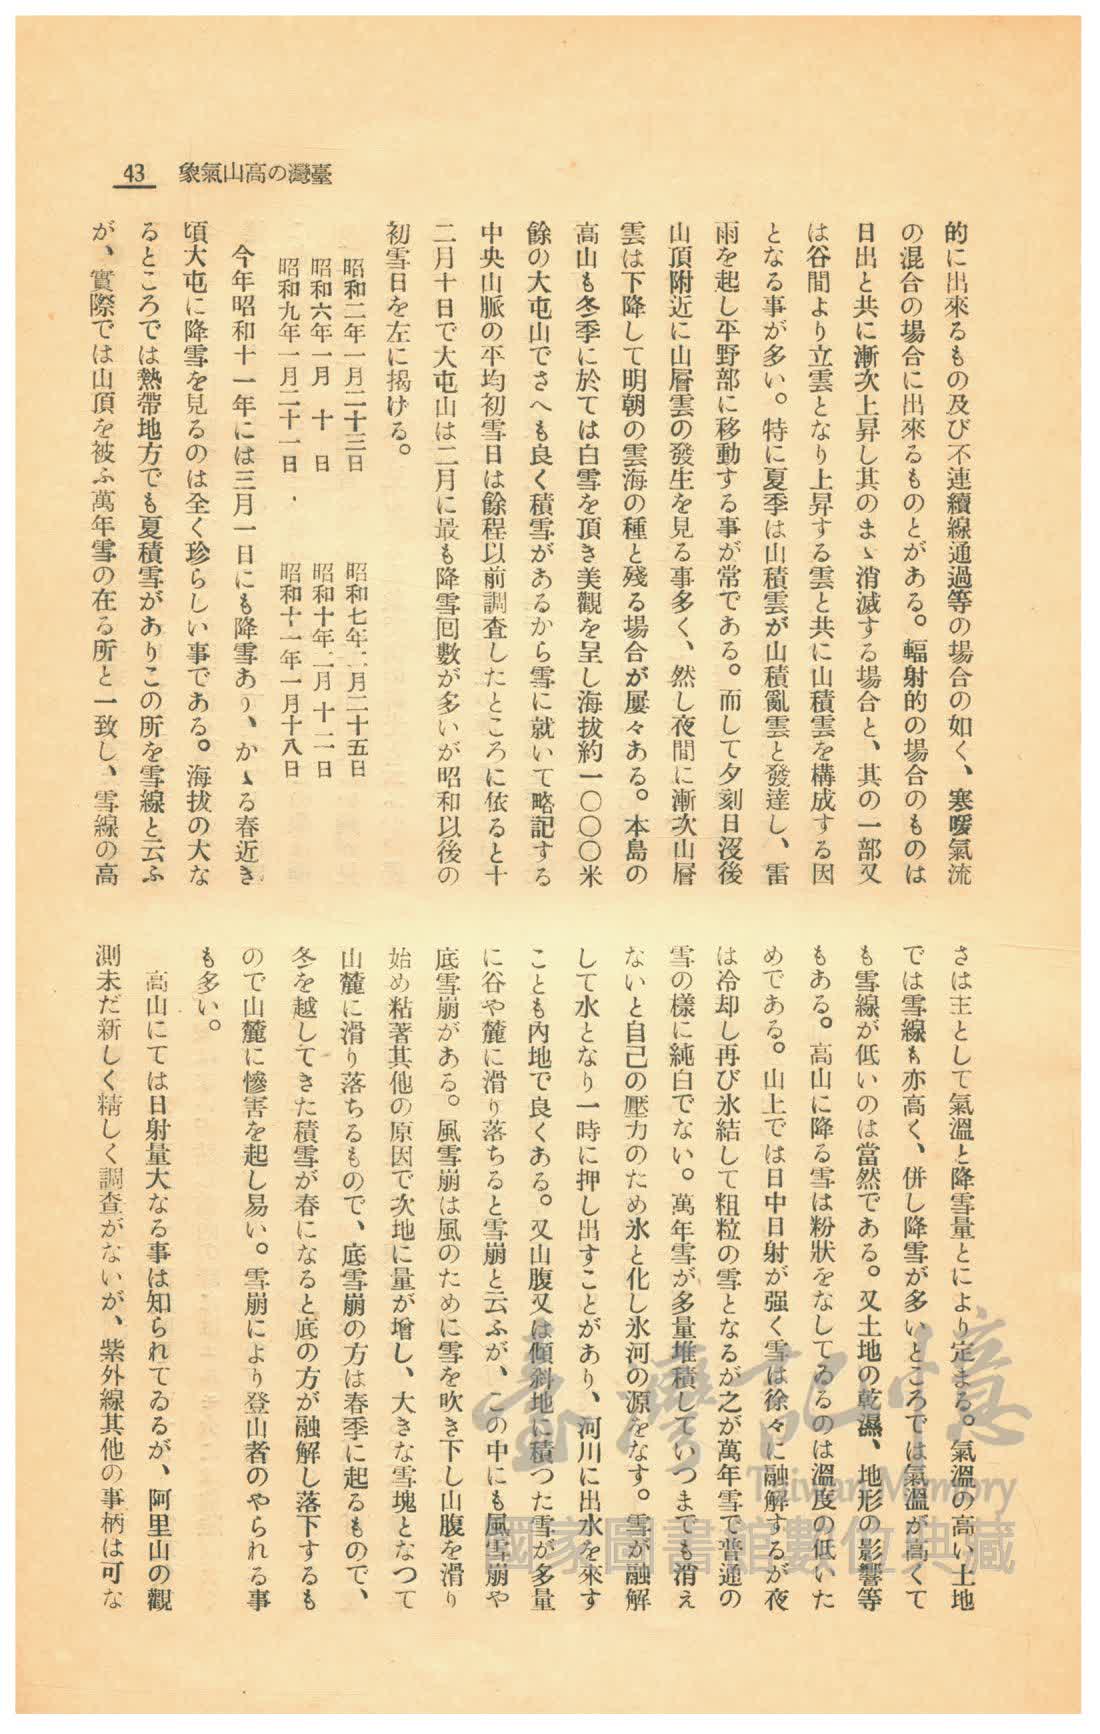 臺灣の高山氣象
43
的に出來るもの及び不連續線通過等の場合の如く、寒暖氣流
の混合の場合に出來るものとがある。輻射的の場合のものは
日出と共に漸次上昇し其のまゝ消滅する場合と、其の一部又
は谷間より立雲となり上昇する雲と共に山積雲を構成する因
となる事が多い。特に夏季は山積雲が山積亂雲と發達し、雷
雨を起し平野部に移動する事が常である。而して夕刻日沒後
山頂附近に山層雲の發生を見る事多く、然し夜間に漸次山層
雲は下降して明朝の雲海の種と殘る場合が屢々ある。本島の
高山も冬季に於ては白雪を頂き美觀を呈し海拔約一〇〇〇米
餘の大屯山でさへも良く積雪があるから雪に就いて略記する
中央山脈の平均初雪日は餘程以前調査したところに依ると十
二月十日で大屯山は二月に最も降雪囘數が多いが昭和以後の
初雪日を左に揭げる。
昭和二年一月二十三日　昭和七年二月二十五日
昭和六年一月　十　日　昭和十年二月十二日
昭和九年一月二十一日　昭和十一年一月十八日
今年昭和十一年には三月一日にも降雪あり、かゝる春近き
頃大屯に降雪を見るのは全く珍らしい事である。海拔の大な
るところでは熱帶地方でも夏積雪がありこの所を雪線と云ふ
が、實際では山頂を被ふ萬年雪の在る所と一致し、雪線の高
さは主として氣溫と降雪量とにより定まる。氣溫の高い土地
では雪線も亦高く、併し降雪が多いところでは氣溫が高くて
も雪線が低いのは當然である。又土地の乾濕、地形の影響等
もある。高山に降る雪は粉狀をなしてゐるのは溫度の低いた
めである。山上では日中日射が强く雪は徐々に融解するが夜
は冷却し再び氷結して粗粒の雪となるが之が萬年雪で普通の
雪の樣に純白でない。萬年雪が多量堆積していつまでも消え
ないと自己の壓力のため氷と化し氷河の源をなす。雪が融解
して水となり一時に押し出すことがあり、河川に出水を來す
ことも內地で良くある。又山腹又は傾斜地に積つた雪が多量
に谷や麓に滑り落ちると雪崩と云ふが、この中にも風雪崩や
底雪崩がある。風雪崩は風のために雪を吹き下し山腹を滑り
始め粘著其他の原因で次地に量が增し、大きな雪塊となつて
山麓に滑り落ちるもので、底雪崩の方は春季に起るもので、
冬を越してきた積雪が春になると底の方が融解し落下するも
ので山麓に慘害を起し易い。雪崩により登山者のやられる事
も多い。
高山にては日射量大なる事は知られてゐるが、阿里山の觀
測未だ新しく精しく調査がないが、紫外線其他の事柄は可な
臺灣記憶
Taiwan Memory
國家圖書館數位典藏